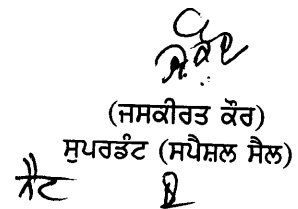 (ਜਸਕੀਰਤ ਕੌਰ)
ਸੁਪਰਡੰਟ (ਸਪੈਸ਼ਲ ਸੈਲ)
ਨੈਟ